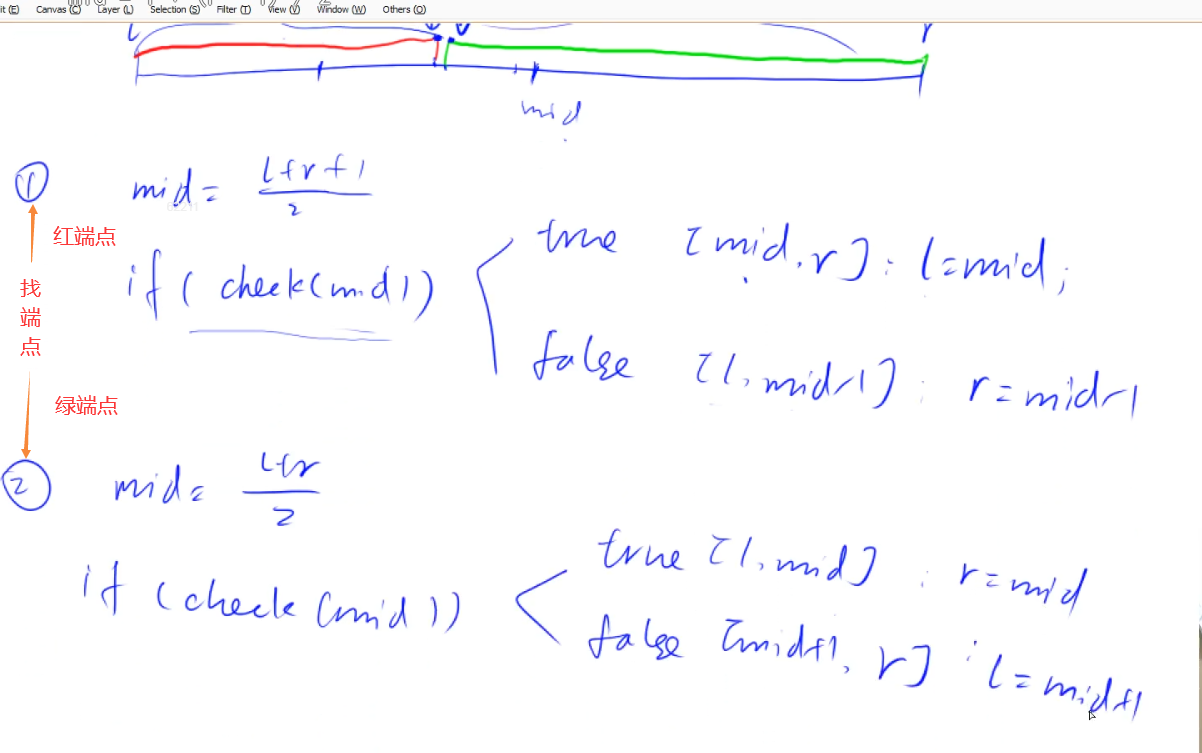 it (E) Canvas (C) Layer (L) Selection (S) Filter (T) View (V) Window (W) Others (O)
l r
mid
① mid = l+r+1
2
红端点
if ( check(mid) ) true [mid, r] : l=mid;
找端点
false [l, mid-1] : r=mid-1
绿端点
② mid = l+r
2
if (check (mid)) true [l, mid] : r=mid
false [mid+1, r] : l=mid+1